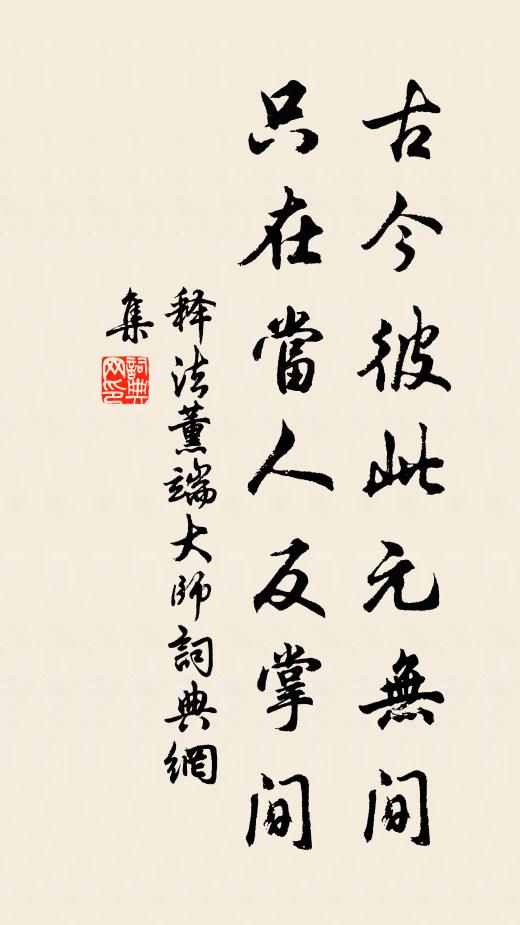 古今彼此元無間
只在當人反掌間
释法薰端大師詞典網
集
詞典网印